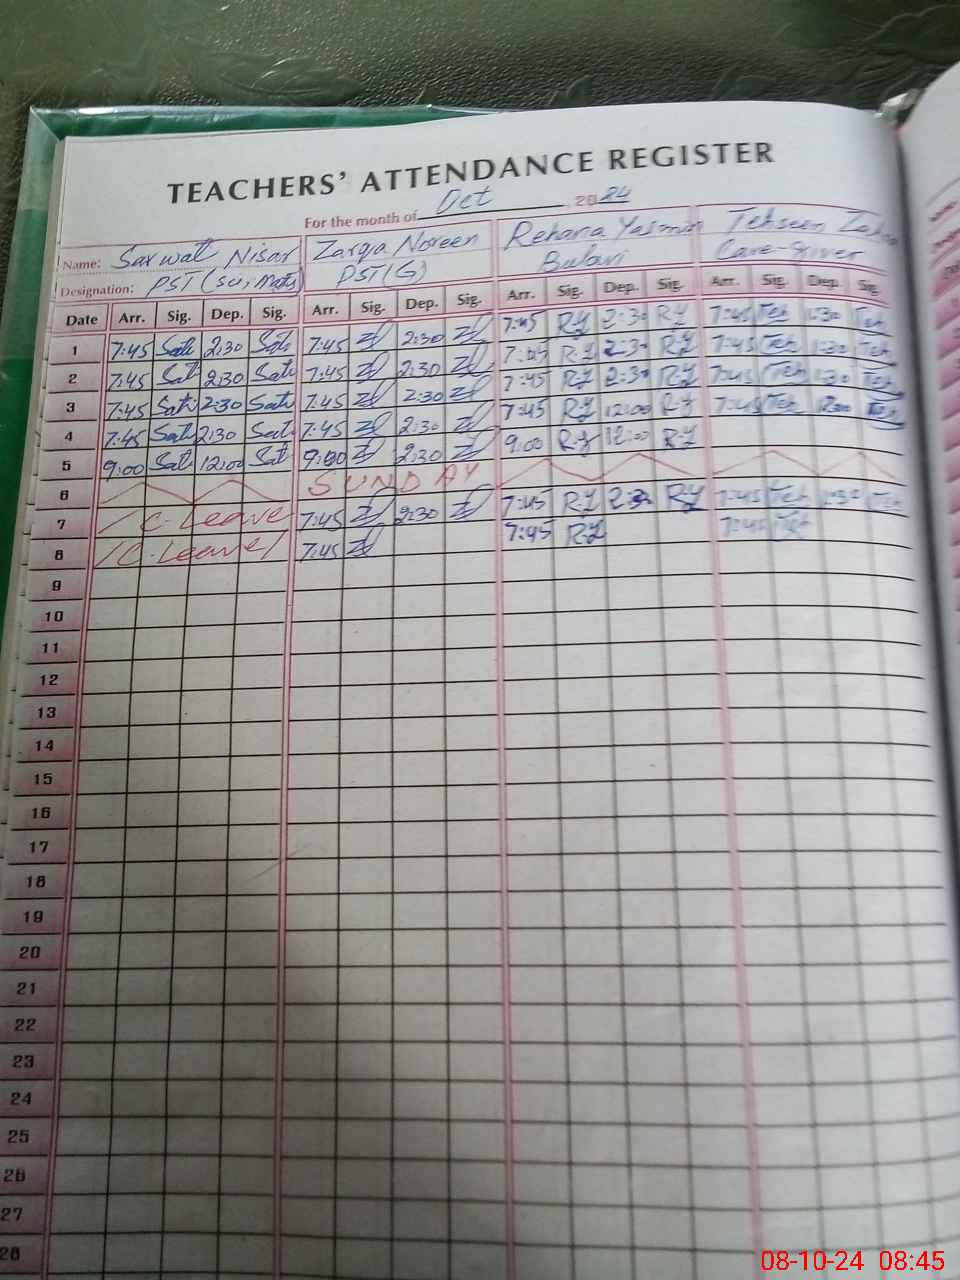 TEACHERS' ATTENDANCE REGISTER
For the month of Oct 2024
Name: Sarwat Nisar Zarqa Noreen Rehana Yasmin Tehseen
Designation: PST (Sci, Math) PST(G) Care-giver
Date Arr. Sig. Dep. Sig. Arr. Sig. Dep. Sig. Arr. Sig. Dep. Sig. Arr. Sig. Dep. Sig.
1 7:45 Sat 2:30 Sat 7:45 2:30 7:45 RY 2:30 RY 7:45 Teh 1:30 Teh
2 7:45 Sat 2:30 Sat 7:45 2:30 7:45 RY 2:30 RY 7:45 Teh 1:30 Teh
3 7:45 Sat 2:30 Sat 7:45 2:30 7:45 RY 2:30 RY 7:45 Teh 1:30 Teh
4 7:45 Sat 2:30 Sat 7:45 2:30 7:45 RY 12:00 RY 7:45 Teh 12:00 Teh
5 9:00 Sat 12:00 Sat 9:00 2:30 9:00 RY 12:00 RY
6 SUNDAY
7 C-Leave 7:45 2:30 7:45 RY 2:30 RY 7:45 Teh 1:30 Teh
8 C-Leave 7:45 7:45 RY 7:45 Teh
9
10
11
12
13
14
15
16
17
18
19
20
21
22
23
24
25
26
27
28
08-10-24 08:45